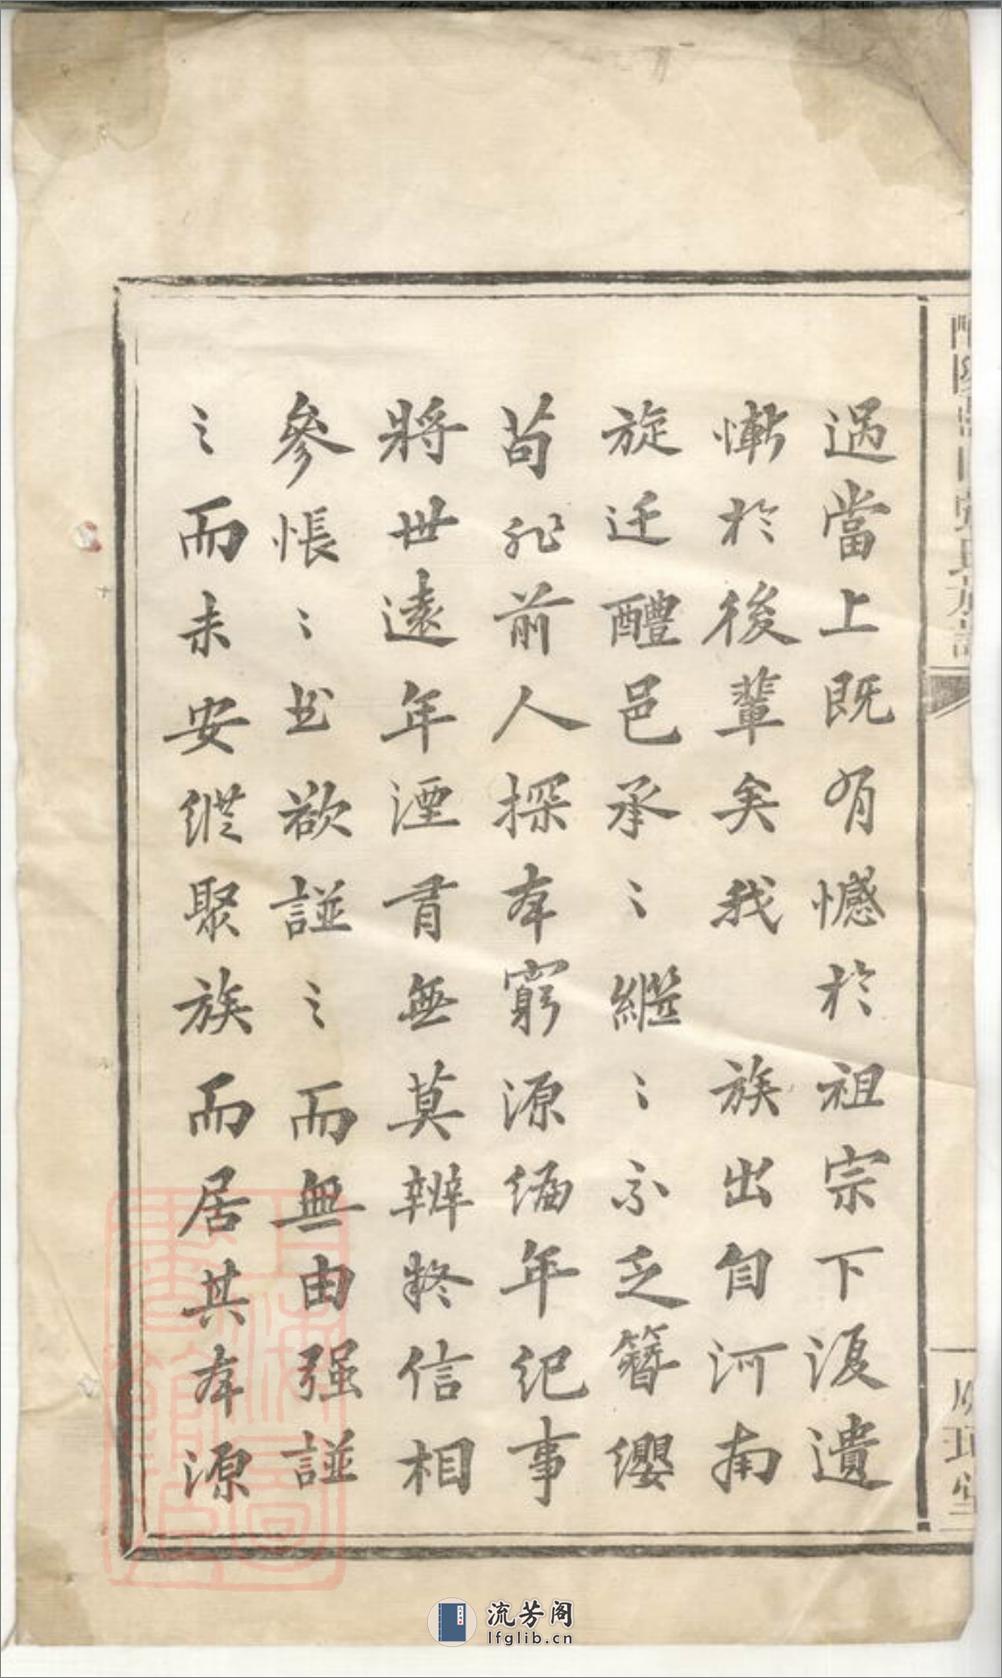 氏族譜
過當上既有憾於祖宗下復遺
慚於後輩矣我 族出自河南
旋迁醴邑承〻繼〻不乏簪纓
苟非前人探本窮源編年紀事
將世遠年湮胥無莫辨疑信相
參悵〻欲譜〻而無由强譜
〻而未安縱聚族而居其本源
流芳阁
lfglib.cn